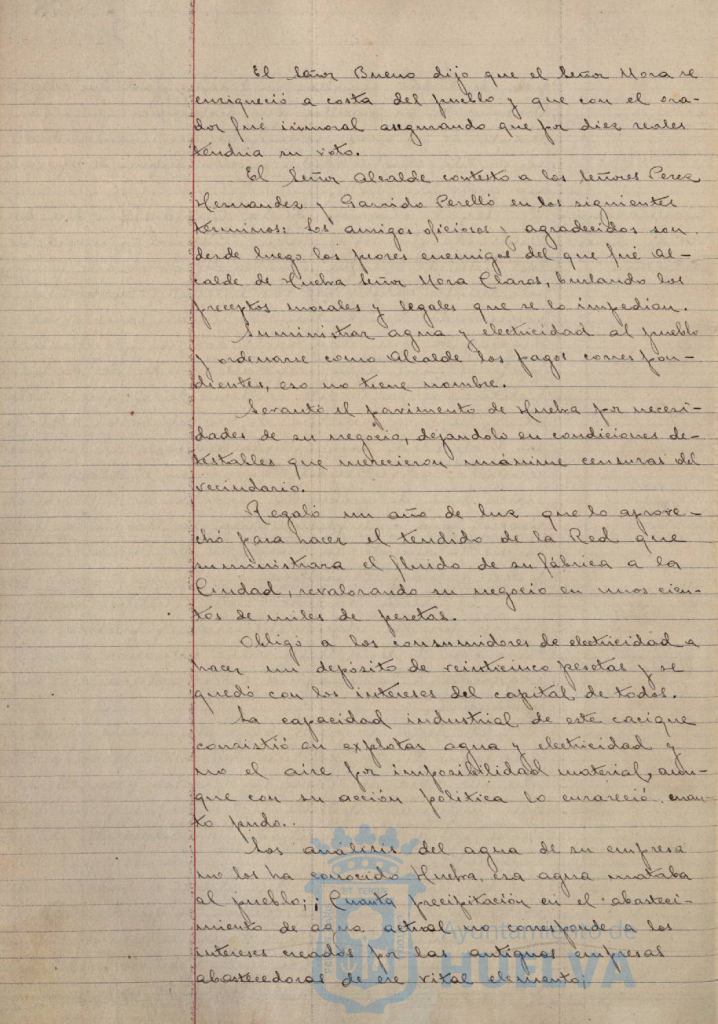 El Señor Bueno dijo que el Señor Mora se
enriqueció a costa del pueblo y que con el ora-
dor fué inmoral asegurando que por diez reales
tendria su voto.
El Señor Alcalde contesto a los Señores Perez
Hernandez y Garrido Perelló en los siguientes
terminos: Los amigos oficiosos y agradecidos son
desde luego los peores enemigos del que fué Al-
calde de Huelva Señor Mora Claros, burlando los
preceptos morales y legales que se lo impedian.
Suministrar agua y electricidad al pueblo
y ordenarse como Alcalde los pagos correspon-
dientes, eso no tiene nombre.
Levantó el pavimento de Huelva por necesi-
dades de su negocio, dejandolo en condiciones de-
testables que merecieron unánime censuras del
vecindario.
Regaló un año de luz que lo aprove-
chó para hacer el tendido de la Red que
suministrara el fluido de su fábrica a la
Ciudad, revalorando su negocio en unos cien-
tos de miles de pesetas.
Obligó a los consumidores de electricidad a
hacer un depósito de veinticinco pesetas y se
quedó con los intereses del capital de todos.
La capacidad industrial de este cacique
consistió en explotar agua y electricidad y
no el aire por imposibilidad material, aun-
que con su acción politica lo enrareció cuan-
to pudo..
Los análisis del agua de su empresa
no los ha conocido Huelva, esa agua mataba
al pueblo; ¡Cuanta precipitación en el abasteci-
miento de agua actual no corresponde a los
intereses creados por las antiguas empresas
abastecedoras de ese vital elemento;
Ayuntamiento de
HUELVA